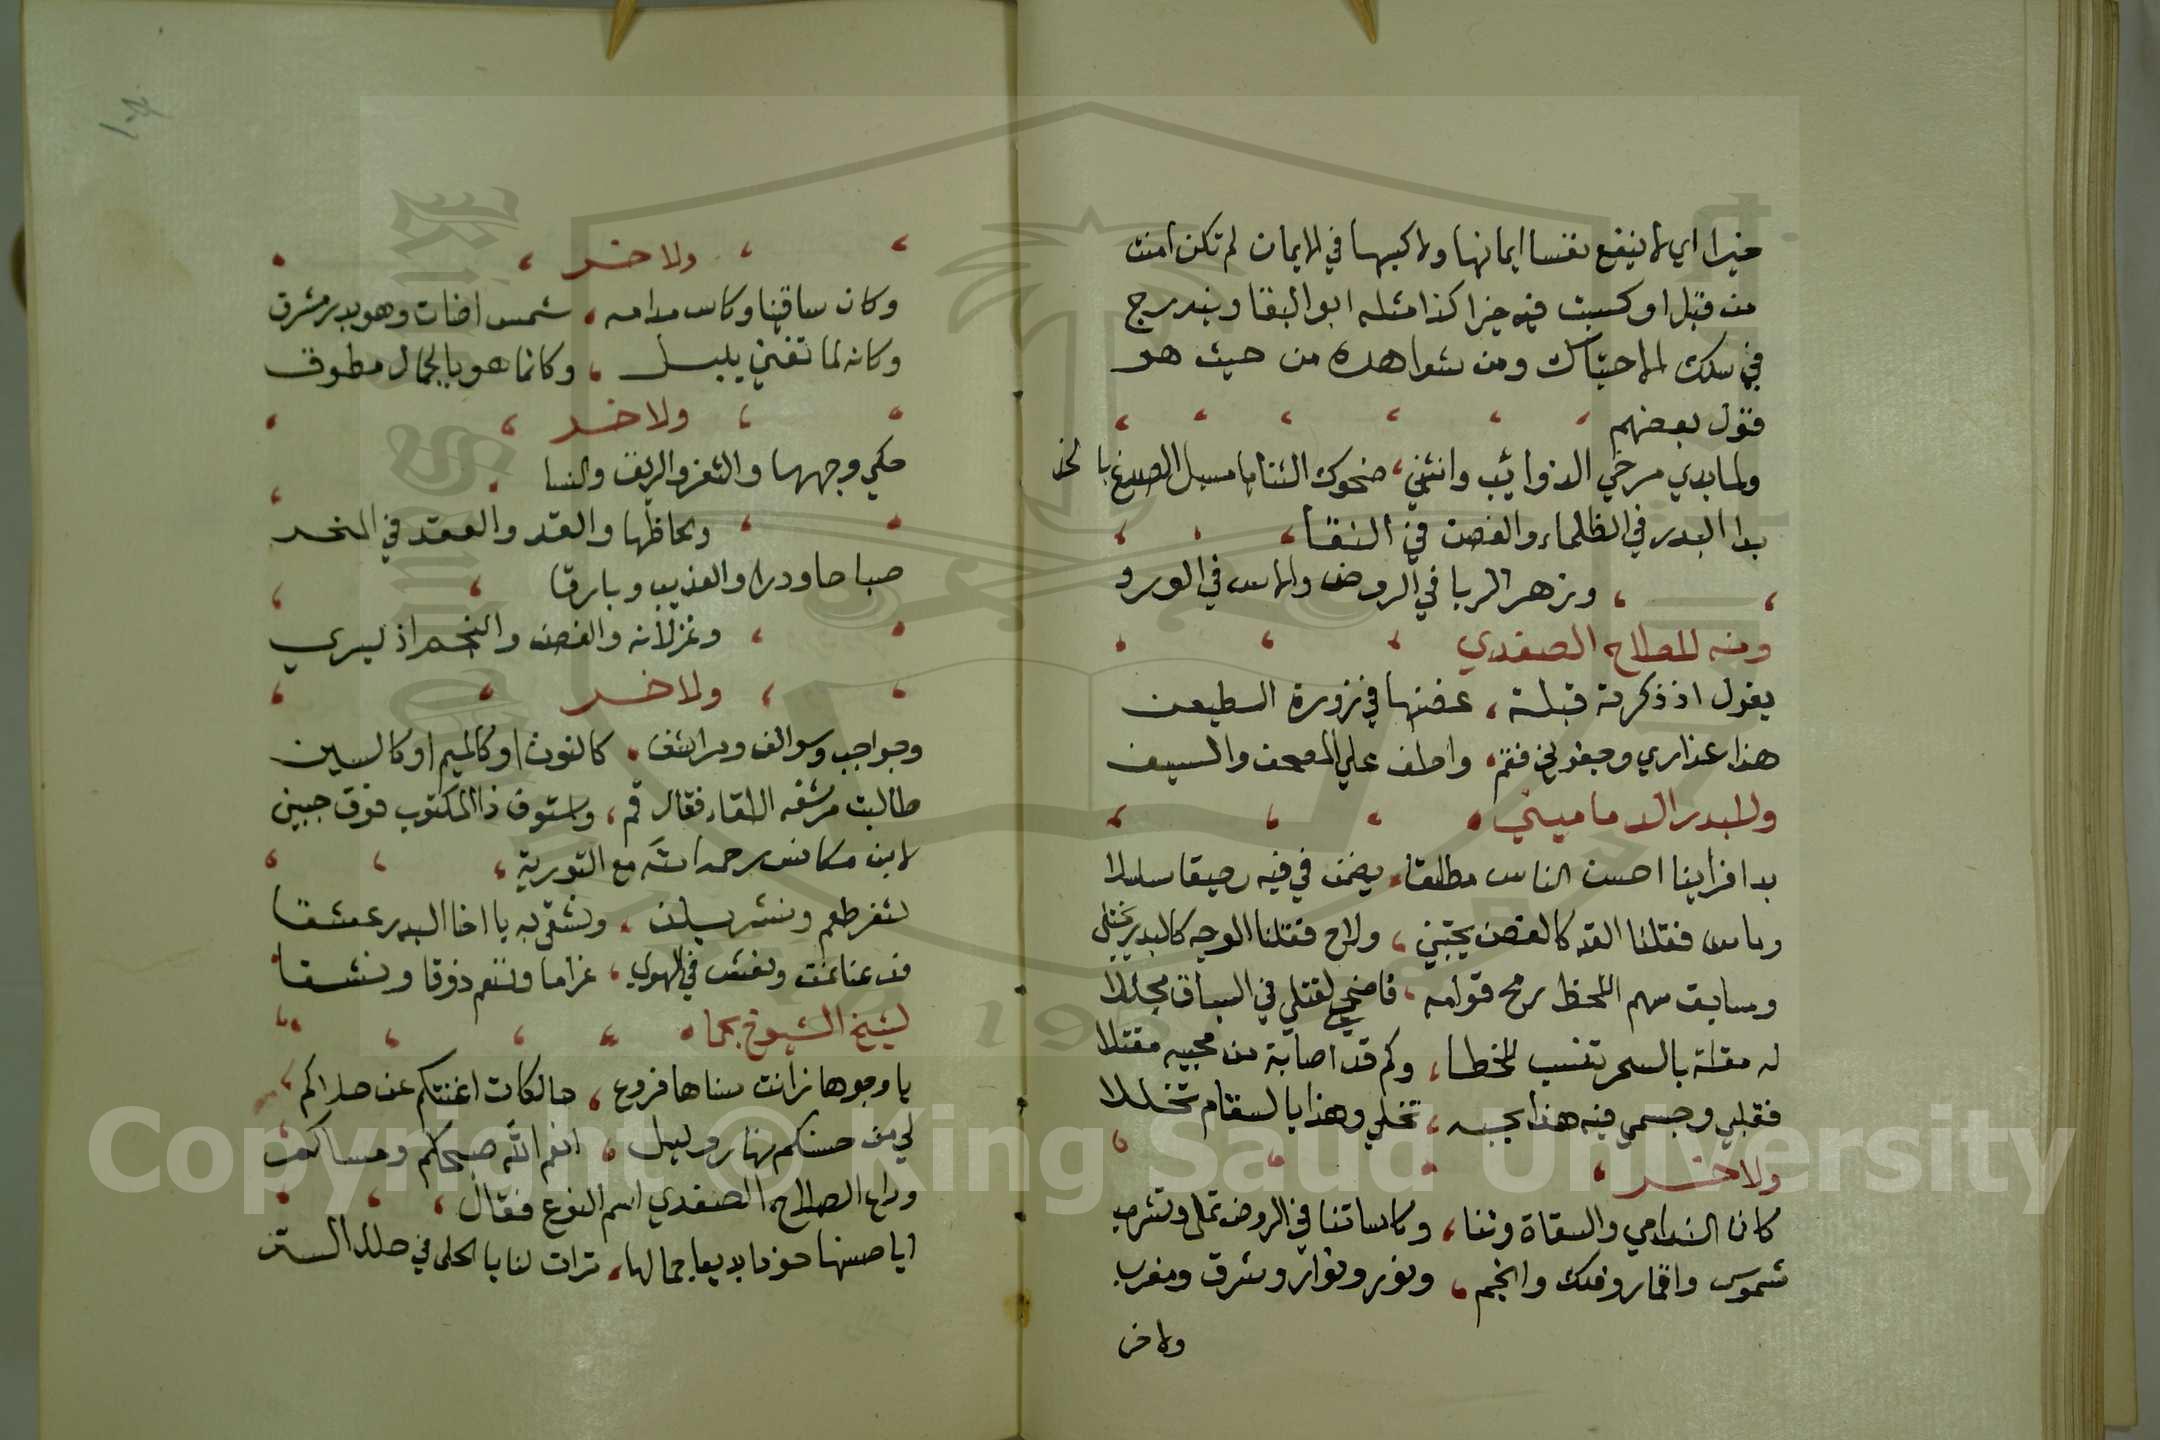 خيرا اي لا ينفع نفسا ايمانها ولا كسبها في الايمان لم تكن امنت
من قبل او كسبت فيه خيرا كذا مثله ابو البقا ويندرج
في سلك الاحتباك ومن شواهده من حيث هو
قول بعضهم
ولما بدي مرخي الذوائب وانثني ضحوك الثنايا مسبل الصدغ بالخد
بدا البدر في الظلماء والغصن في النقا
وزهر الربا في الروض والاس في الورد
ومنه للصلاح الصفدي
يقول اذ ذكرته قبلة عضنها في زورة الطيف
هذا عذاري وجفوني فقم واحلف علي المصحف والسيف
وللبدر الدماميني
بدا فراينا احسن الناس مطلقا يضمن في فيه رحيقا سلسلا
وماس فقلنا القد كالغصن يجتني ولاح فقلنا الوجه كالبدر يجتلي
وسابق سهم اللحظ رمح قوامه فاضحي لقتلي في السباق مجللا
له مقلة بالسحر تنسب للخطا وكم قد اصابة من محبيه مقتلا
فقلبي وجسمي فيه هذا بحبه تخلي وهذا بالسقام تخللا
ولاخر
كان الندامي والسقاة وننا وكاساتنا في الروض تملي وتشرب
شموس واقمار وفلك وانجم ونور ونوار وشرق ومغرب
ولاخر
ولاخر
وكان ساقينا وكاس مدامه شمس اضات وهو بدر مشرق
وكانه لما تغني بلبل وكانما هو بالجمال مطوق
ولاخر
حكي وجهها والثغر والريق والنسا
ولحاظها والقد والعقد في النحر
صباحا ودرا والعذيب وبارقا
وغزلانه والغصن والنجم اذ يسري
ولاخر
وحواجب وسوالف ومراشف كالنون او كالميم او كالسين
طالبت مرشفه اللقاء فقال قم واستوف ذا المكتوب فوق جبيني
لابن مكانس رحمه الله مع التورية
لثغر طعم ونشر سلف ونشقي به يا اخا البدر عشقا
غراما وننعم ذوقا ونشقا
لشيخ الشيوخ بحماه
يا وجوها زانت سناها فروع حالكات اغنتكم عن حلاكم
لي من حسنكم نهار وليل انعم الله صبحكم ومساكم
وراع الصلاح الصفدي اسم النوع فقال
ايا حسنها خودا بديعا جمالها ترات لنا بالحلي في حلل الستر
١٠٤
Copyright © King Saud University
King Saud University
1957